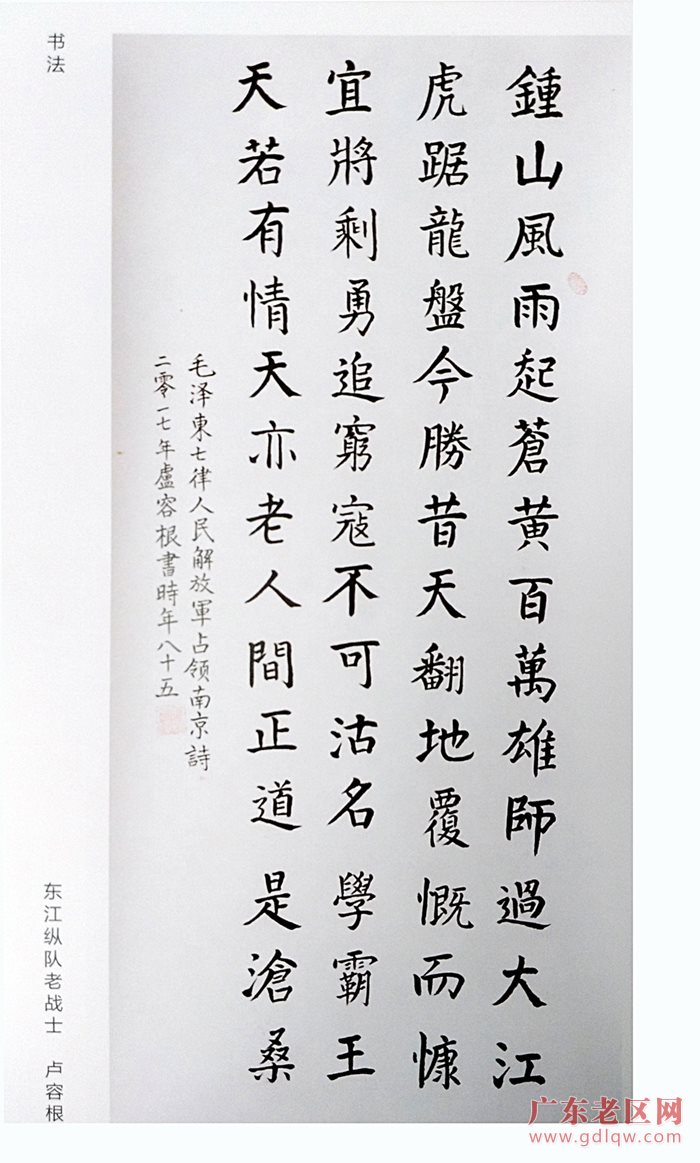 鍾山風雨起蒼黄百萬雄師過大江
虎踞龍盤今勝昔天翻地覆慨而慷
宜將剩勇追窮寇不可沽名學霸王
天若有情天亦老人間正道是滄桑
毛泽東七律人民解放軍占领南京詩
二零一七年盧容根書時年八十五
书法
东江纵队老战士 卢容根
广东老区网
www.gdlqw.com